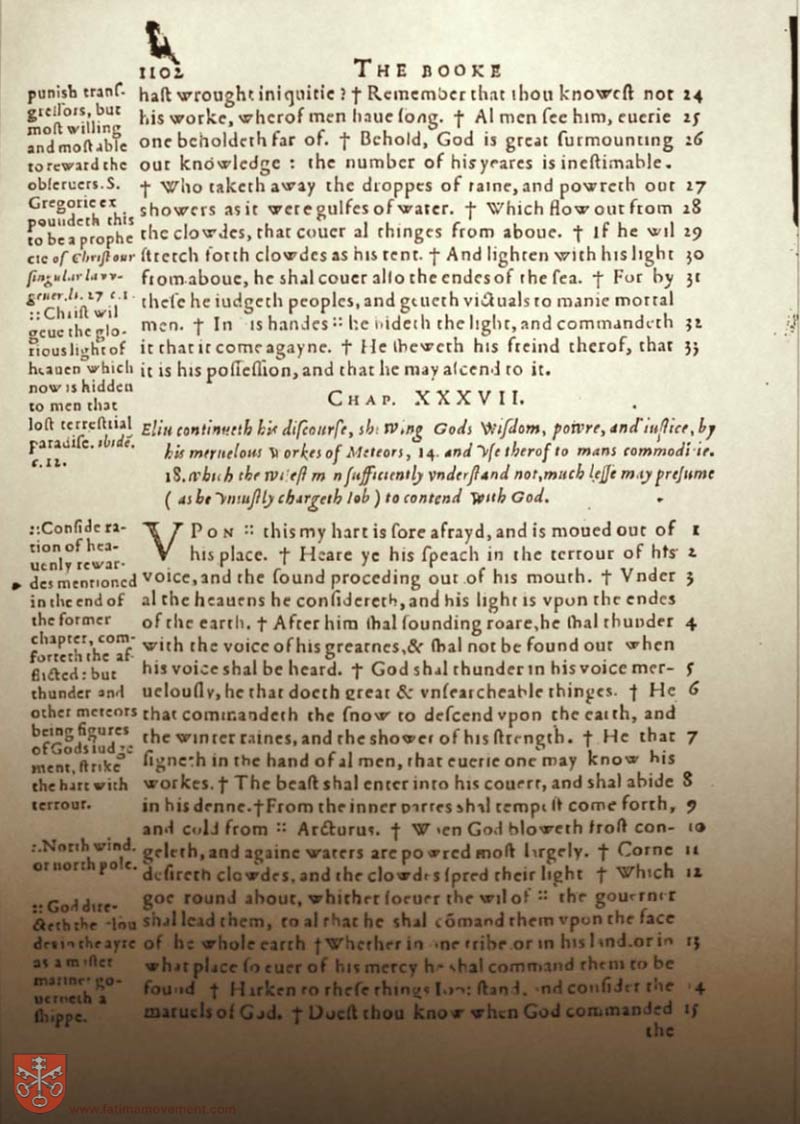 1102
THE BOOKE
punish transſ-
greſſors, but
moſt willing
and moſt able
to reward the
obſeruers. S.
Gregorie ex
poundeth this
to be a prophe
cie of Chriſt our
ſingular law-
geuer. li. 27 c. 1.
:: Chriſt wil
geue the glo-
rious light of
heauen which
now is hidden
to men that
loſt terreſtrial
paradiſe. ibidē.
c. 12.
haſt wrought iniquitie? † Remember that thou knoweſt not 24
his worke, wherof men haue ſong. † Al men ſee him, euerie 25
one beholdeth far of. † Behold, God is great ſurmounting 26
out knowledge: the number of his yeares is ineſtimable.
† Who taketh away the droppes of raine, and powreth out 27
showers as it were gulfes of water. † Which flow out from 28
the clowdes, that couer al thinges from aboue. † If he wil 29
ſtretch forth clowdes as his tent. † And lighten with his light 30
from aboue, he shal couer alſo the endes of the ſea. † For by 31
theſe he iudgeth peoples, and geueth victuals to manie mortal
men. † In is handes :: he hideth the light, and commandeth 32
it that it come agayne. † He sheweth his freind therof, that 33
it is his poſſeſſion, and that he may aſcend to it.
CHAP. XXXVII.
Eliu continueth his diſcourſe, shewing Gods Wiſdom, powre, and iuſtice, by
his meruelous workes of Meteors, 14. and vſe therof to mans commoditie.
18. which the wiſeſt men ſufficiently vnderſtand not, much leſſe may preſume
(as he vniuſtly chargeth Iob) to contend with God.
:: Conſidera-
tion of hea-
uenly rewar-
des mentioned
in the end of
the former
chapter, com-
forteth the af-
flicted: but
thunder and
other meteors
being figures
of Gods iudge
ment, ſtrike
the hart with
terrour.
:: North wind.
or north pole.
:: God dire-
cteth the clou
des in the ayre
as a miſter
mariner go-
uerneth a
ſhippe.
VPON :: this my hart is ſore afrayd, and is moued out of 1
his place. † Heare ye his ſpeach in the terrour of his 2
voice, and the ſound proceding out of his mouth. † Vnder 3
al the heauens he conſidereth, and his light is vpon the endes
of the earth. † After him ſhal ſounding roare, he ſhal thunder 4
with the voice of his greatnes, & ſhal not be found out when
his voice shal be heard. † God shal thunder in his voice mer- 5
uelouſly, he that doeth great & vnſearcheable thinges. † He 6
that commandeth the ſnow to deſcend vpon the earth, and
the winter raines, and the shower of his ſtrength. † He that 7
ſigneth in the hand of al men, that euerie one may know his
workes. † The beaſt shal enter into his couert, and shal abide 8
in his denne. † From the inner partes shal tempeſt come forth, 9
and cold from :: Arcturus. † When God bloweth froſt con- 10
geleth, and againe waters are powred moſt largely. † Corne 11
deſireth clowdes, and the clowdes ſpred their light † Which 12
goe round about, whither ſoeuer the wil of :: the gouerner
shal lead them, to al that he shal cōmand them vpon the face
of he whole earth † Whether in one tribe, or in his land, or in 13
what place ſo euer of his mercy he shal command them to be
found † Harken to theſe things Iob: ſtand, and conſider the 14
maruels of God. † Doeſt thou know when God commanded 15
the
www.fatimamovement.com